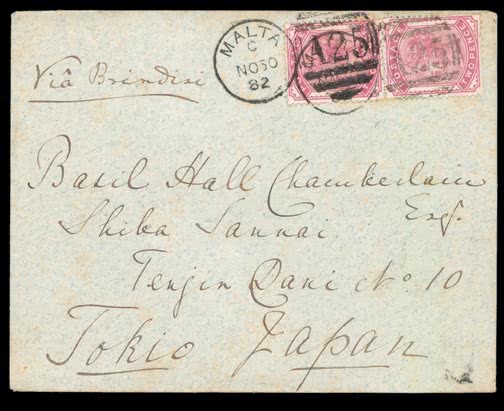 MALTA
C
NO 30
82
A25
A25
POSTAGE
Viâ Brindisi
Basil Hall Chamberlain
Esq.
Shiba Sannai
Tenjin Dani No. 10
Tokio Japan